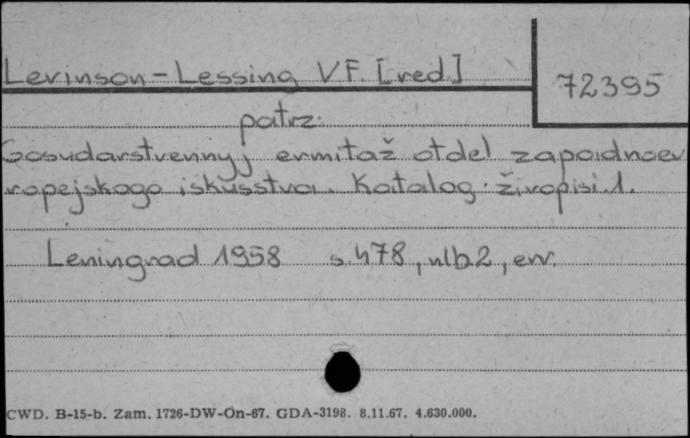 Levinson-Lessing V.F. [red.]
72395
patrz:
Gosudarstvennyj ermitaž otdel zapadnoev
ropejskogo iskusstva. Katalog živopisi.1.
Leningrad 1958 s.478, nlb.2, err.
CWD. B-15-b. Zam. 1726-DW-On-67. GDA-3198. 8.11.67. 4.630.000.